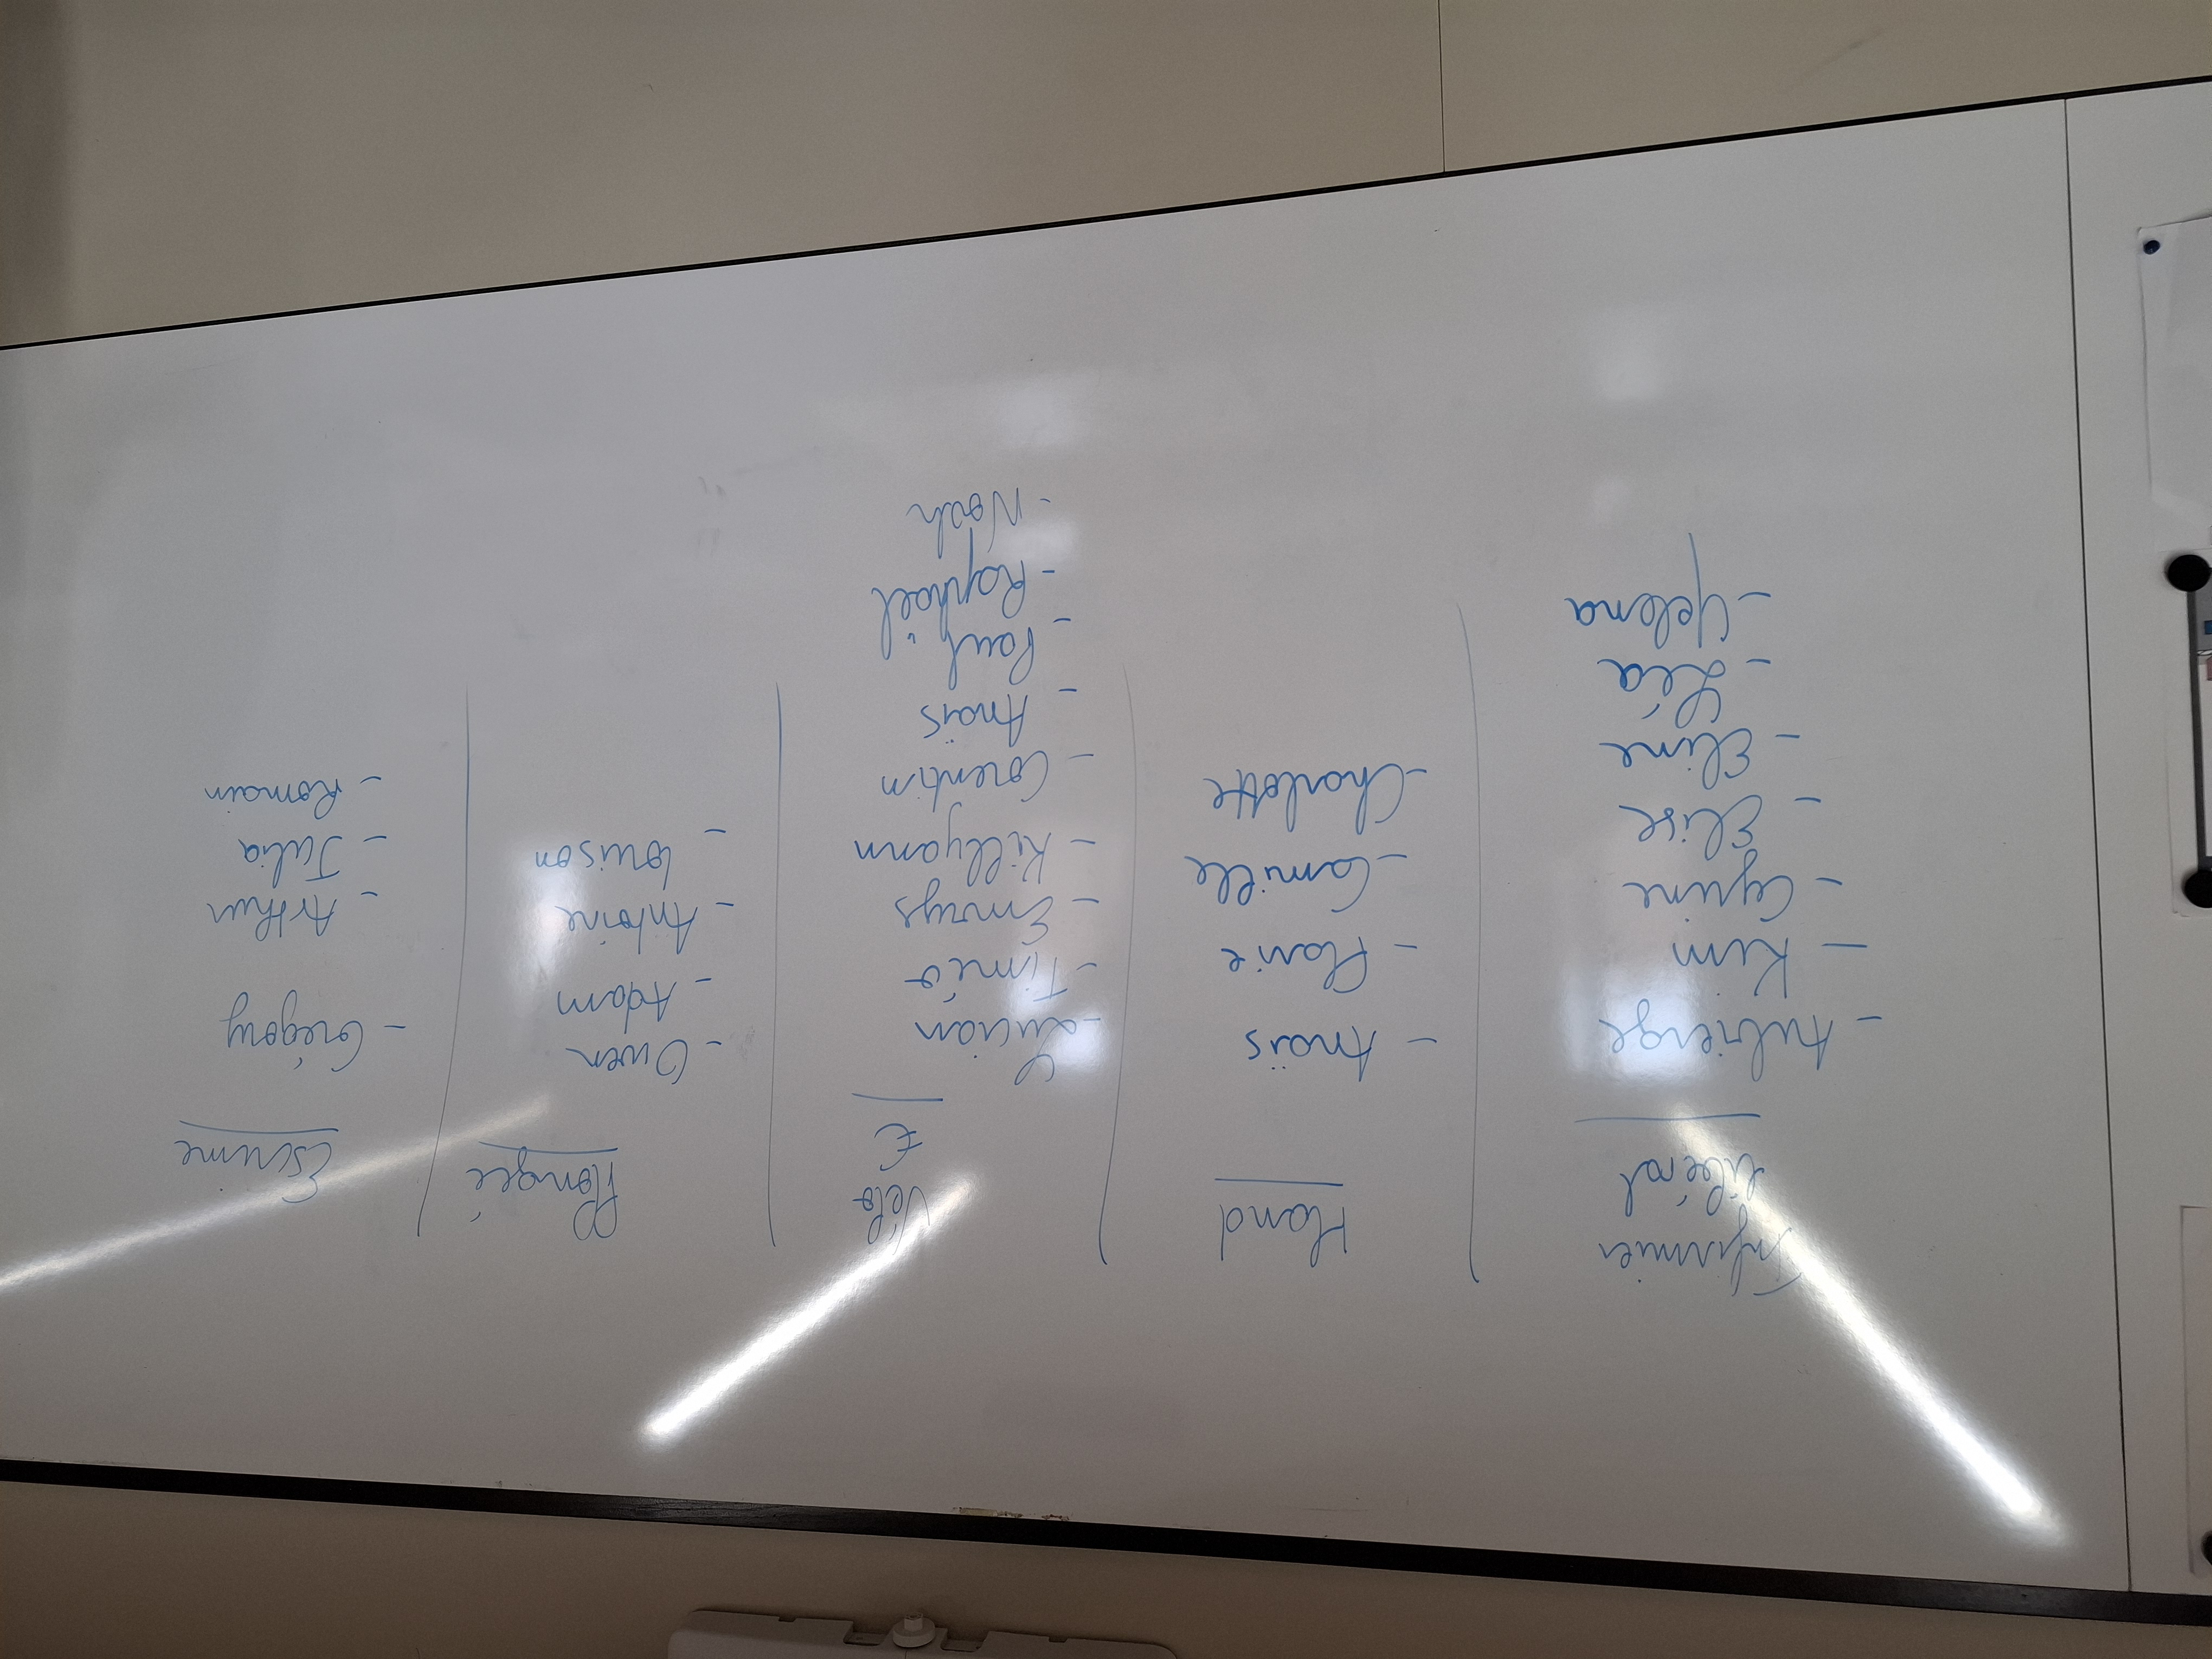 Infirmier
libéral
- Aubierge
- Kim
- Cyrine
- Elise
- Eline
- Léa
- Yelena
Hand
- Anaïs
- Flavie
- Camille
- Charlotte
Vélo
€
- Lucian
- Timéo
- Emrys
- Killyann
- Corentin
- Anaïs
- Paul
- Raphaël
- Noah
Plongée
- Owen
- Adam
- Antoine
- Louison
Escrime
- Grégory
- Arthur
- Julia
- Romain